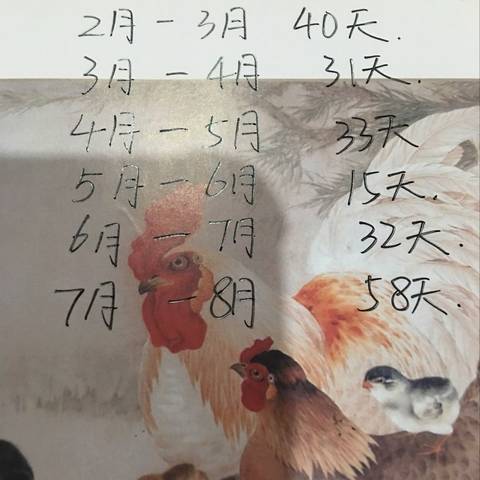 2月 - 3月 40天.
3月 - 4月 31天.
4月 - 5月 33天
5月 - 6月 15天.
6月 - 7月 32天.
7月 - 8月 58天.